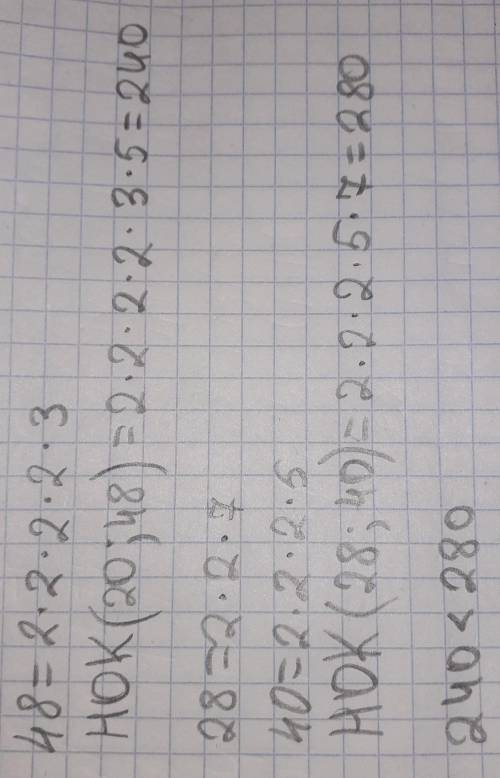 48=2·2·2·2·3
НОК(20;48)=2·2·2·2·3·5=240
28=2·2·7
40=2·2·2·5
НОК(28;40)=2·2·2·5·7=280
240<280